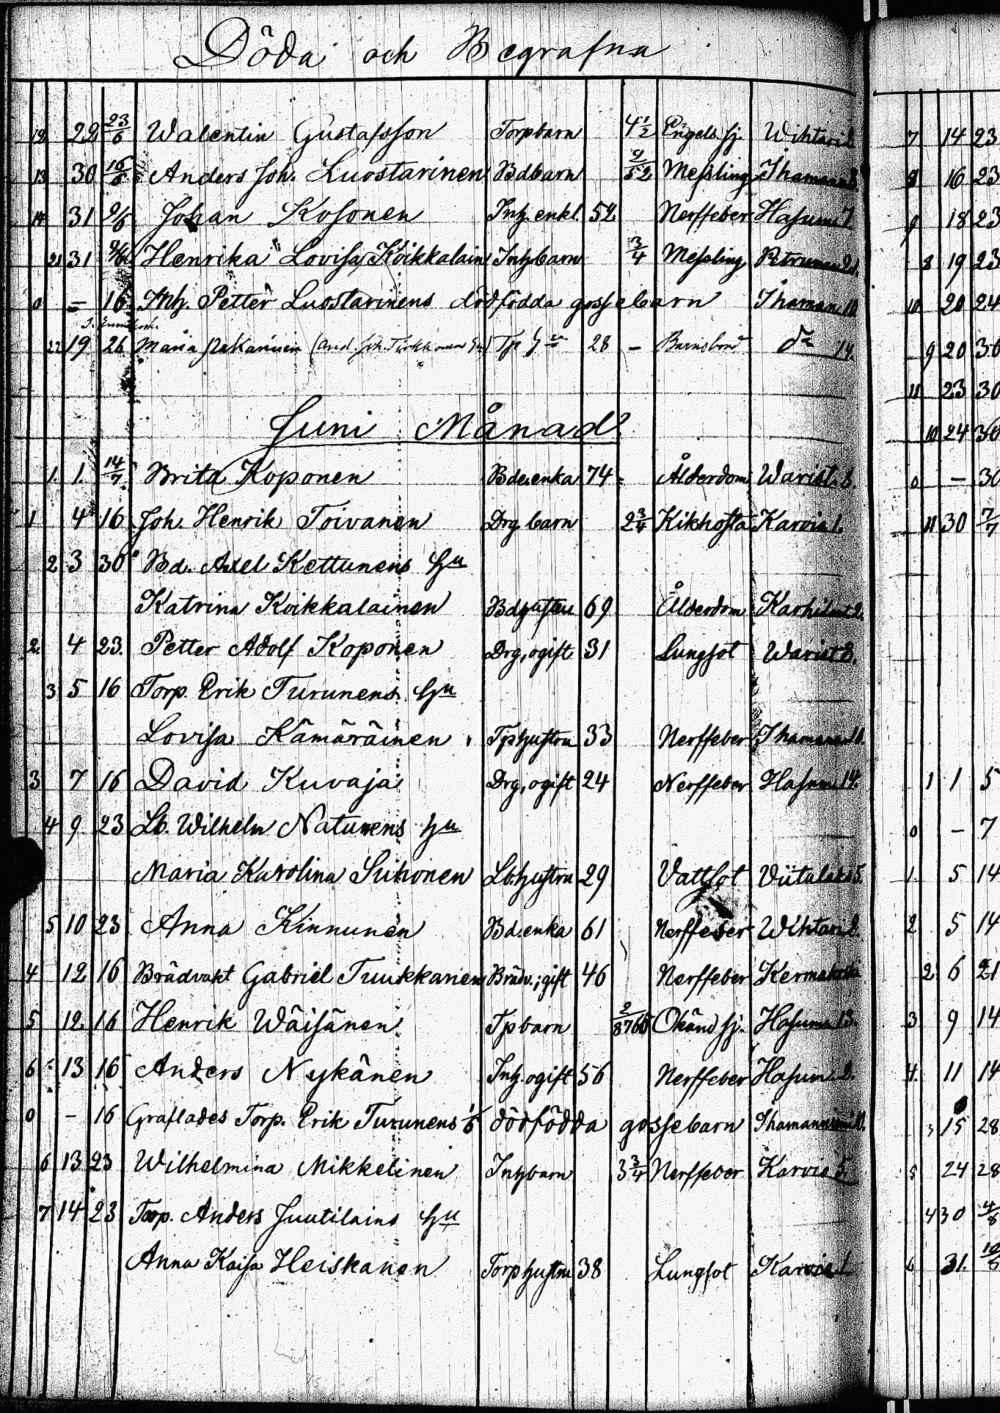 Döda och Begrafna
12 29 23/6 Walentin Gustafsson Torpbarn 4 1/2 Engels. sj. Wihtari 2.
13 30 16/6 Anders Joh. Luostarinen Bdbarn 9/52 Messling Ihamana 8.
14 31 9/6 Johan Kosonen Inh. enkl. 52 Nerffeber Hasum. 7.
21 31 9/6 Henrika Lovisa Koikkalain Inhbarn 3/4 Messling
0 – 16 Inh. Petter Luostarinens dödfödda gossebarn Ihaman. 10
22 19 26 Maria Pakarinen 28 – Barnsbörd 14.
Juni Månad
1. 1. 14/7 Brita Koponen Bde.enka 74 Ålderdom Warist. 8.
1 4 16 Joh. Henrik Toivanen Drg barn 2 3/4 Kikhosta Karvio 1.
2 3 30 Bd. Axel Kettunens Hu
Katrina Koikkalainen Bdhustru 69 Ålderdom Karhilat 2.
2. 4 23. Petter Adolf Koponen Drg, ogift 31 Lungsot Warist 8.
3 5 16 Torp. Erik Turunens Hu
Lovisa Kämäräinen Tphustru 33 Nerffeber Ihamana 10.
3 7 16 David Kuvaja Drg, ogift 24 Nerffeber Hasum. 14.
4 9 23 Lb. Wilhelm Naturens Hu
Maria Karolina Suhonen Lb.hustru 29 Vattsot Viitalaks 5.
5 10 23 Anna Kinnunen Bd.enka 61 Nerffeber Wihtari 2.
4 12 16 Brådvakt Gabriel Tuukkanen Brådv., gift 46 Nerffeber
5 12. 16 Henrik Wäisänen Tpbarn 2/8765 Okänd sj. Hasum. 13.
6 13 16 Anders Nykänen Inh. ogift 56 Nerffeber Hasum. 2.
0 – 16 Graflades Torp. Erik Turunens 1/6 dödfödda gossebarn Ihamanniemi 10.
6 13 23 Wilhelmina Mikkelinen Inhbarn 3 3/4 Nerffeber Karvio 5.
7 14 23 Torp. Anders Juutilains Hu
Anna Kaisa Heiskanen Torphustru 38 Lungsot Karvio 1.
7 14 23
8 16 23
9 18 23
8 19 23
10 20 24
9 20 30
11 23 30
10 24 30
0 – 30
11 30 7/7
1 1 5
0 – 7
1. 5 14
2 5 14
2. 6 21
3 9 14
4. 11 14
3 15 28
5 24 28
4 30 4/8
6 31.